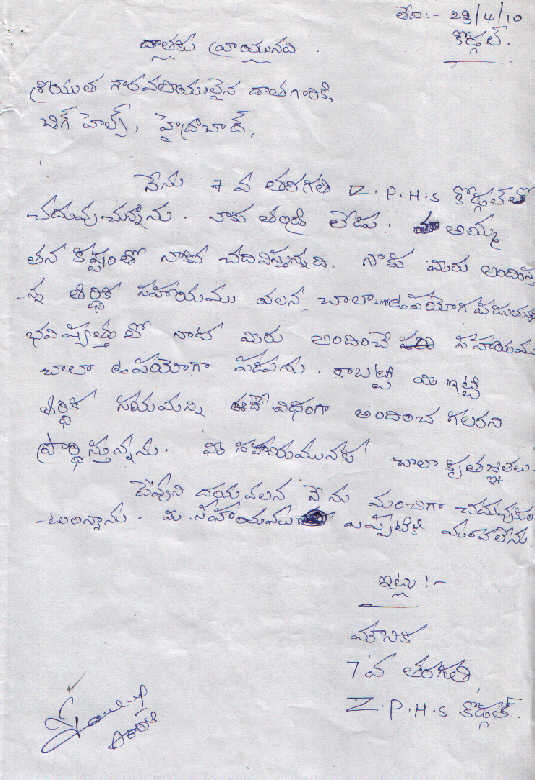 తేది:- 23/4/10
కోడ్గల్.
దాతకు వ్రాయునది.
శ్రీయుత గౌరవనీయులైన దాతగారికి,
బిగ్ హెల్ప్, హైద్రాబాద్,
నేను 7 వ తరగతి Z.P.H.S కోడ్గల్ లో
చదువుచున్నాను. నాకు తండ్రి లేడు. అమ్మ
తన కష్టంతో నాకు చదివిస్తున్నది. నాకు మీరు అందిస్తు
-న్న ఆర్థిక సహాయము వలన చాలా ఉపయోగపడుతుంది
భవిష్యత్తులో నాకు మీరు అందించే సహాయము
చాలా ఉపయోగ పడును. కాబట్టి మీ ఇట్టి
ఆర్థిక సహాయమన్ని ఇదే విధంగా అందించ గలరని
ప్రార్థిస్తున్నాను. మీ సహాయమునకు చాలా కృతజ్ఞతలు.
దేవుని దయవలన నేను మంచిగా చదువుకుం
-టున్నాను. మీ సహాయము ఎప్పటికి మరవలేను
ఇట్లు :-
మౌనిక
7 వ తరగతి,
Z.P.H.S కోడ్గల్.